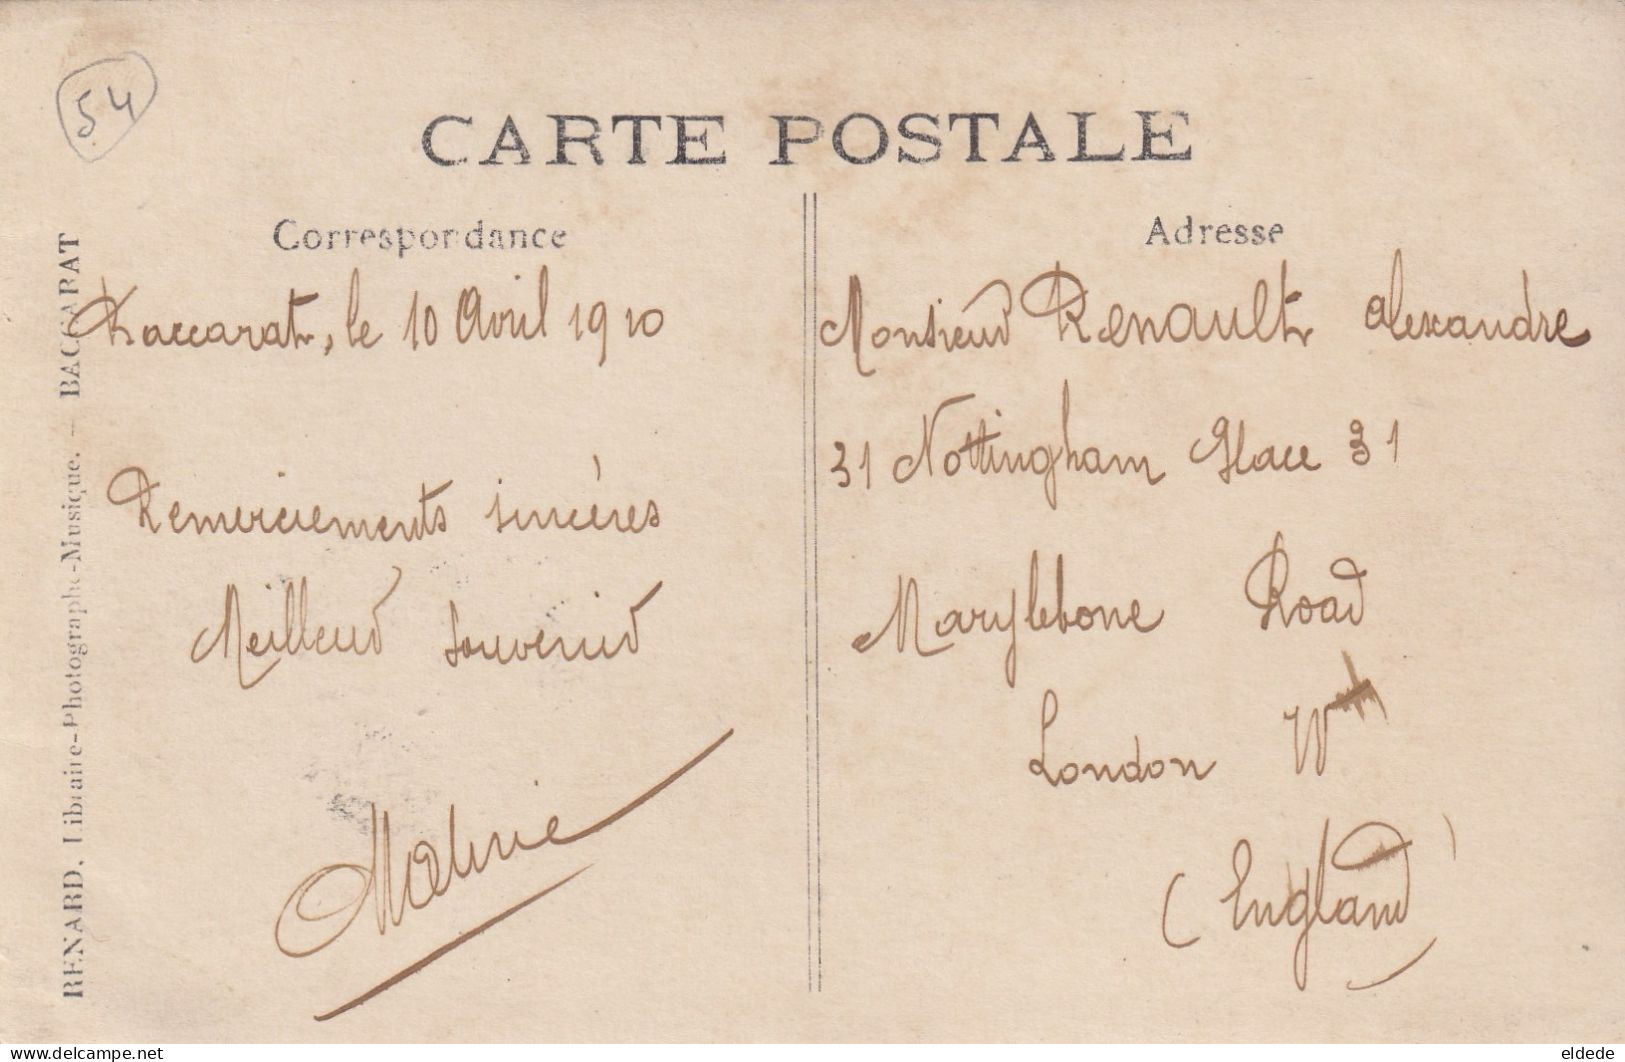 54
CARTE POSTALE
Correspondance
Baccarat, le 10 Avril 1910
Remerciements sincères
Meilleur souvenir
Adresse
Monsieur Renault Alexandre
31 Nottingham Place 31
Marylebone Road
London W
(England)
RENARD. Libraire-Photographe-Musique. — BACCARAT
delcampe.net
eldede